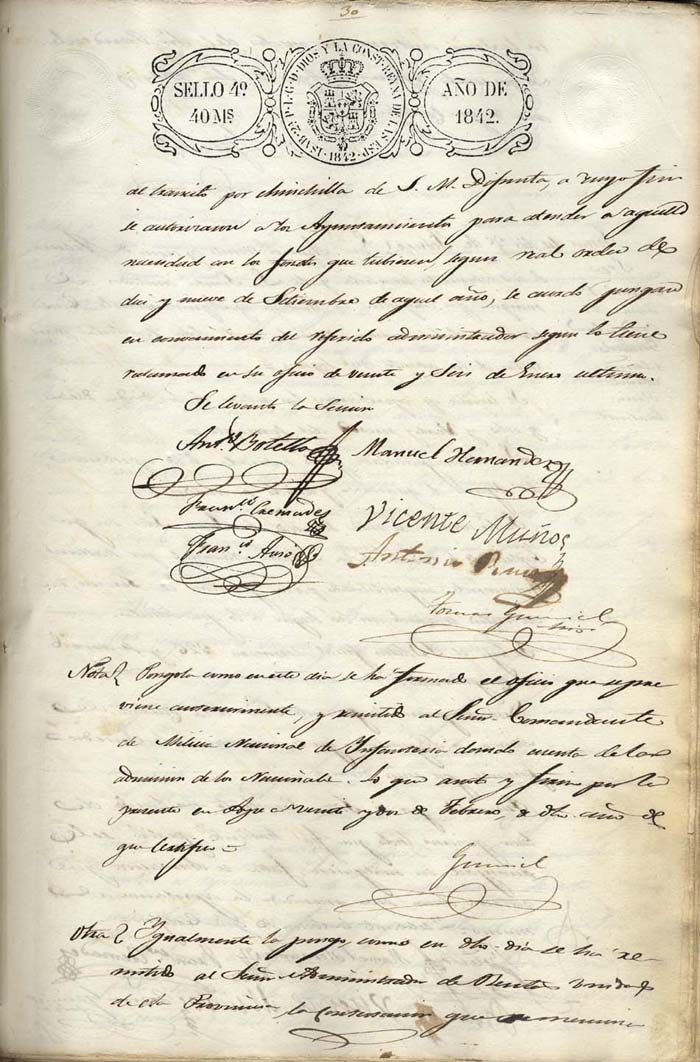 30
SELLO 4º
40 Ms
ISAB. 2ª P. L. G. D. DIOS Y LA CONST. REINA DE LAS ESP.
1842.
AÑO DE
1842.
al transito por chinchilla de S. M. Difunta, a cuyo fin
se autorizaron a los Ayuntamientos para atender a aquella
necesidad con los fondos que tubieren, segun real orden de
diez y nueve de Setiembre de aquel año, se acordó pongase
en conocimiento del referido administrador segun lo tiene
reclamado en su oficio de veinte y seis de Enero ultimo.
Se levantó la Sesion
Antº Botella
Manuel Hernandez
Franco Cremades
Vicente Muños
Franco
Antonio
Tomas Gumiel
Nota Pongola como en este dia se ha formado el oficio que se pre
viene anteriormente, y remitido al Señor Comandante
de Milicia Nacional de Infanteria dando cuenta de la
admision de los Nacionales. lo que anoto y firmo por la
presente en Aspe a veinte y dos de Febrero, de dho. año de
que certifico =
Gumiel
Otra Igualmente la pongo, como en dho. dia se ha re
mitido al Señor Administrador de Rentas Unidas
de esta Provincia la Contestacion que se menciona